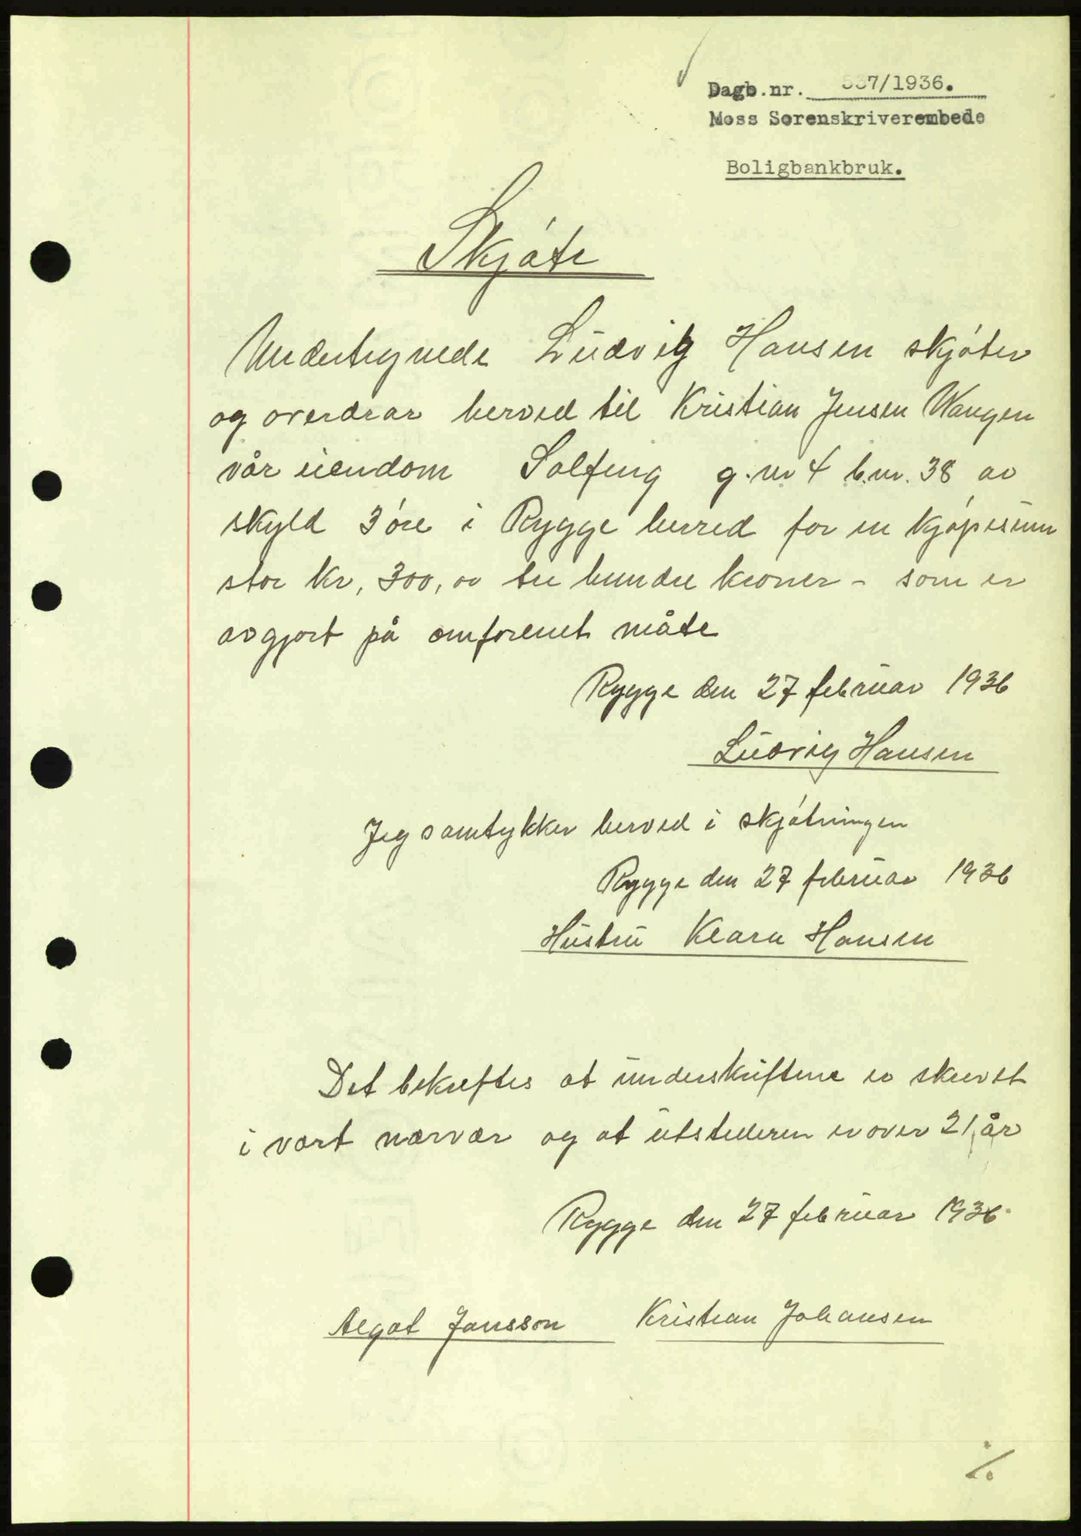 Dagb.nr. 537/1936.
Moss Sorenskriverembede
Boligbankbruk.
Skjøte
Undertegnede Ludvig Hansen skjøter
og overdrar herved til Kristian Jensen Wangen
vår eiendom Solfeng g.nr 4 b.nr. 38 av
skyld 3 øre i Rygge herred for en kjøpesum
stor kr, 300,00 tre hundre kroner - som er
avgjort på omforenet måte
Rygge den 27 februar 1936
Ludvig Hansen
Jeg samtykker herved i skjøtningen
Rygge den 27 februar 1936
Hustru Klara Hansen
Det bekreftes at underskriftene er skrevet
i vort nærvær og at utstederen er over 21 år
Rygge den 27 februar 1936
Algot Jansson Kristian Johansen